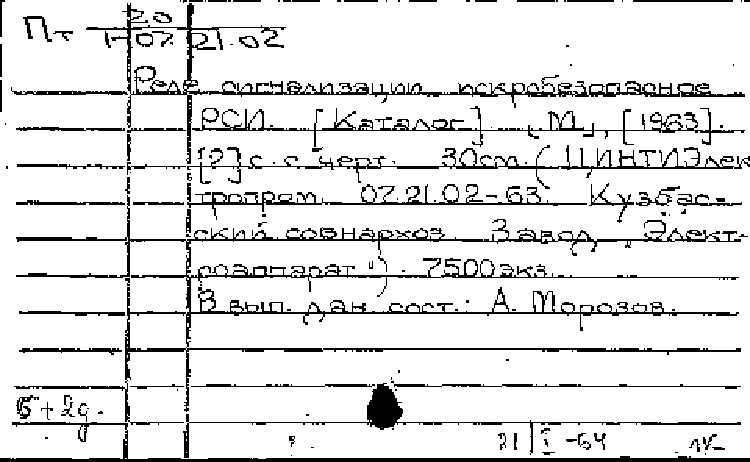 Пт 20
1-07.21.02
Реле сигнализации искробезопасное
РСИ. [Каталог]. „М“, [1963].
[2] с. с черт. 30см. (ЦИНТИЭлек-
тропром. 07.21.02-63. Кузбас-
ский совнархоз. Завод „Элект-
роаппарат“). 7500экз.
В вып. дан. сост.: А. Морозов.
5+2д.
21/I-64